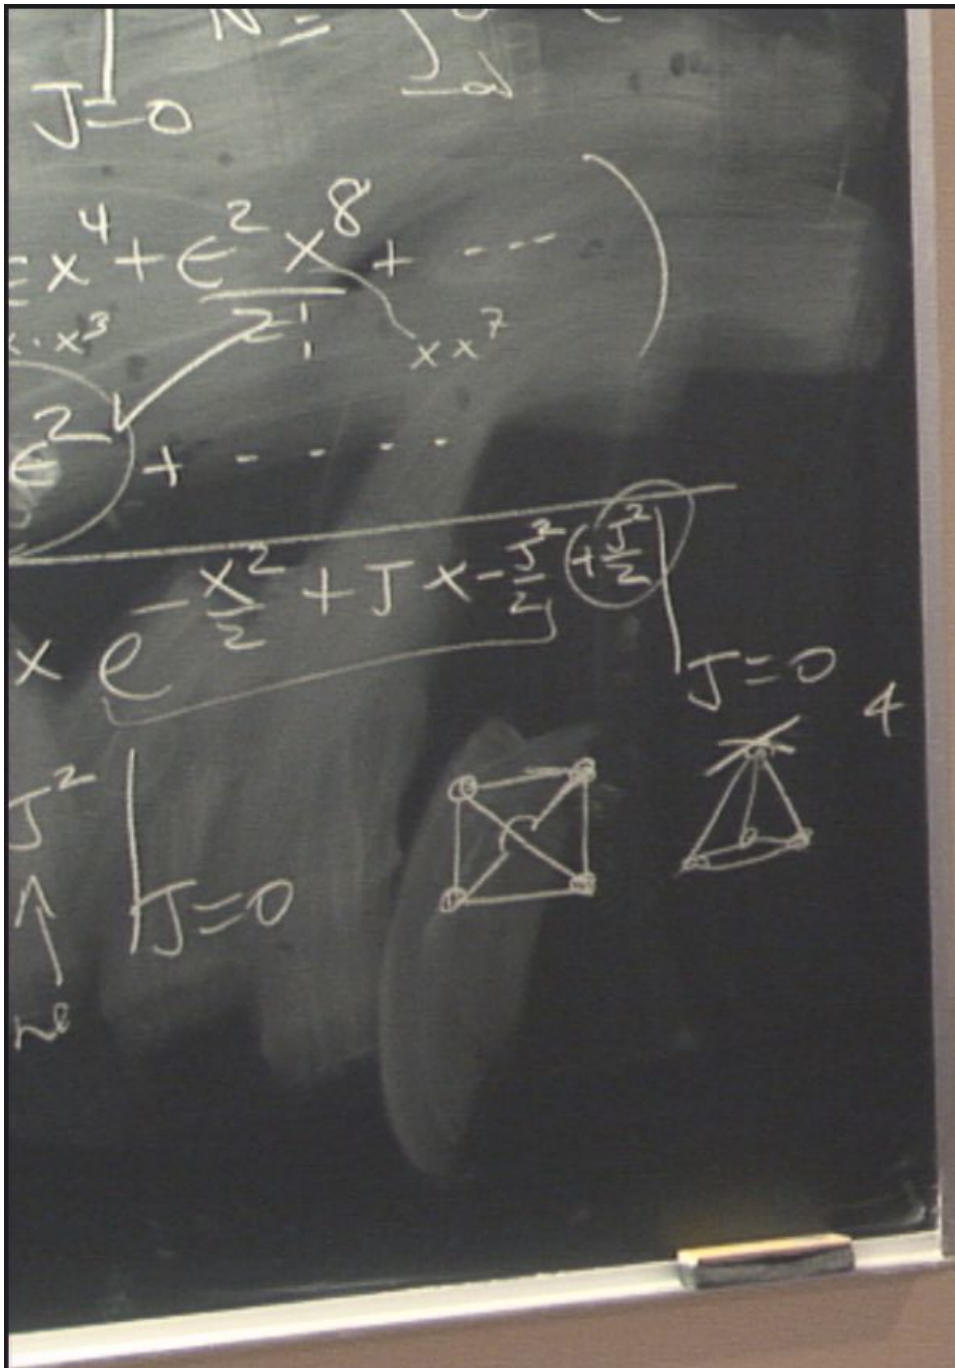 J=0
x⁴ + ϵ² x⁸ / 2! + ----
· x³
x x⁷
ϵ² + - - - -
x e^{-x²/2 + Jx - J²/2 (+ J²/2)} |
J=0
4
J² |
J=0